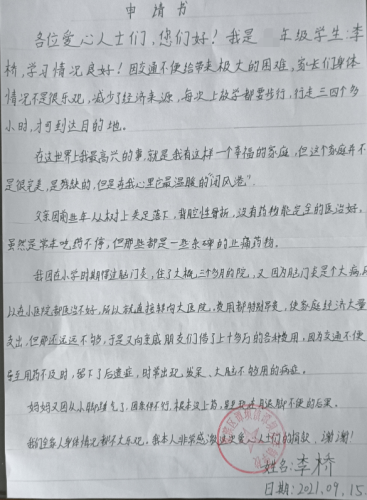 申请书
各位爱心人士们,您们好!我是 年级学生:李
桥,学习情况良好!因交通不便给带来极大的困难,家长们身体
情况不是很乐观,减少了经济来源,每次上放学都要步行,行走三四个多
小时,才可到达目的地。
在这世界上我最高兴的事,就是我有这样一个幸福的家庭,但这个家庭并不
是很完美,是残缺的,但是在我心里它最温暖的"闭风港"。
父亲因前些年从树上来足落下,背腔性骨折,没有药物能完全的医治好,
虽然是常年吃药不停,但那些都是一些杂碎的止痛药物。
我因在小学时期得过脑门炎,住了大概三个多月的院,又因为脑门炎是个大病,所
以在小医院都医治不好,所以就直接转向大医院,费用都特别昂贵,使家庭经济大量
支出,但那还远远不够,于是又向亲戚朋友们借了上十多万的各种费用,因为交通不便
用药不及时,留下了后遗症,时常出现,发呆、大脑不够用的病症。
妈妈又因从小脚 气了,因条件不行,根本没上药, 脚不便的后果。
我们全家人身体情况都不太乐观,我本人非常感激这次爱心人士们的捐款,谢谢!
姓名:李桥
日期:2021.09.15